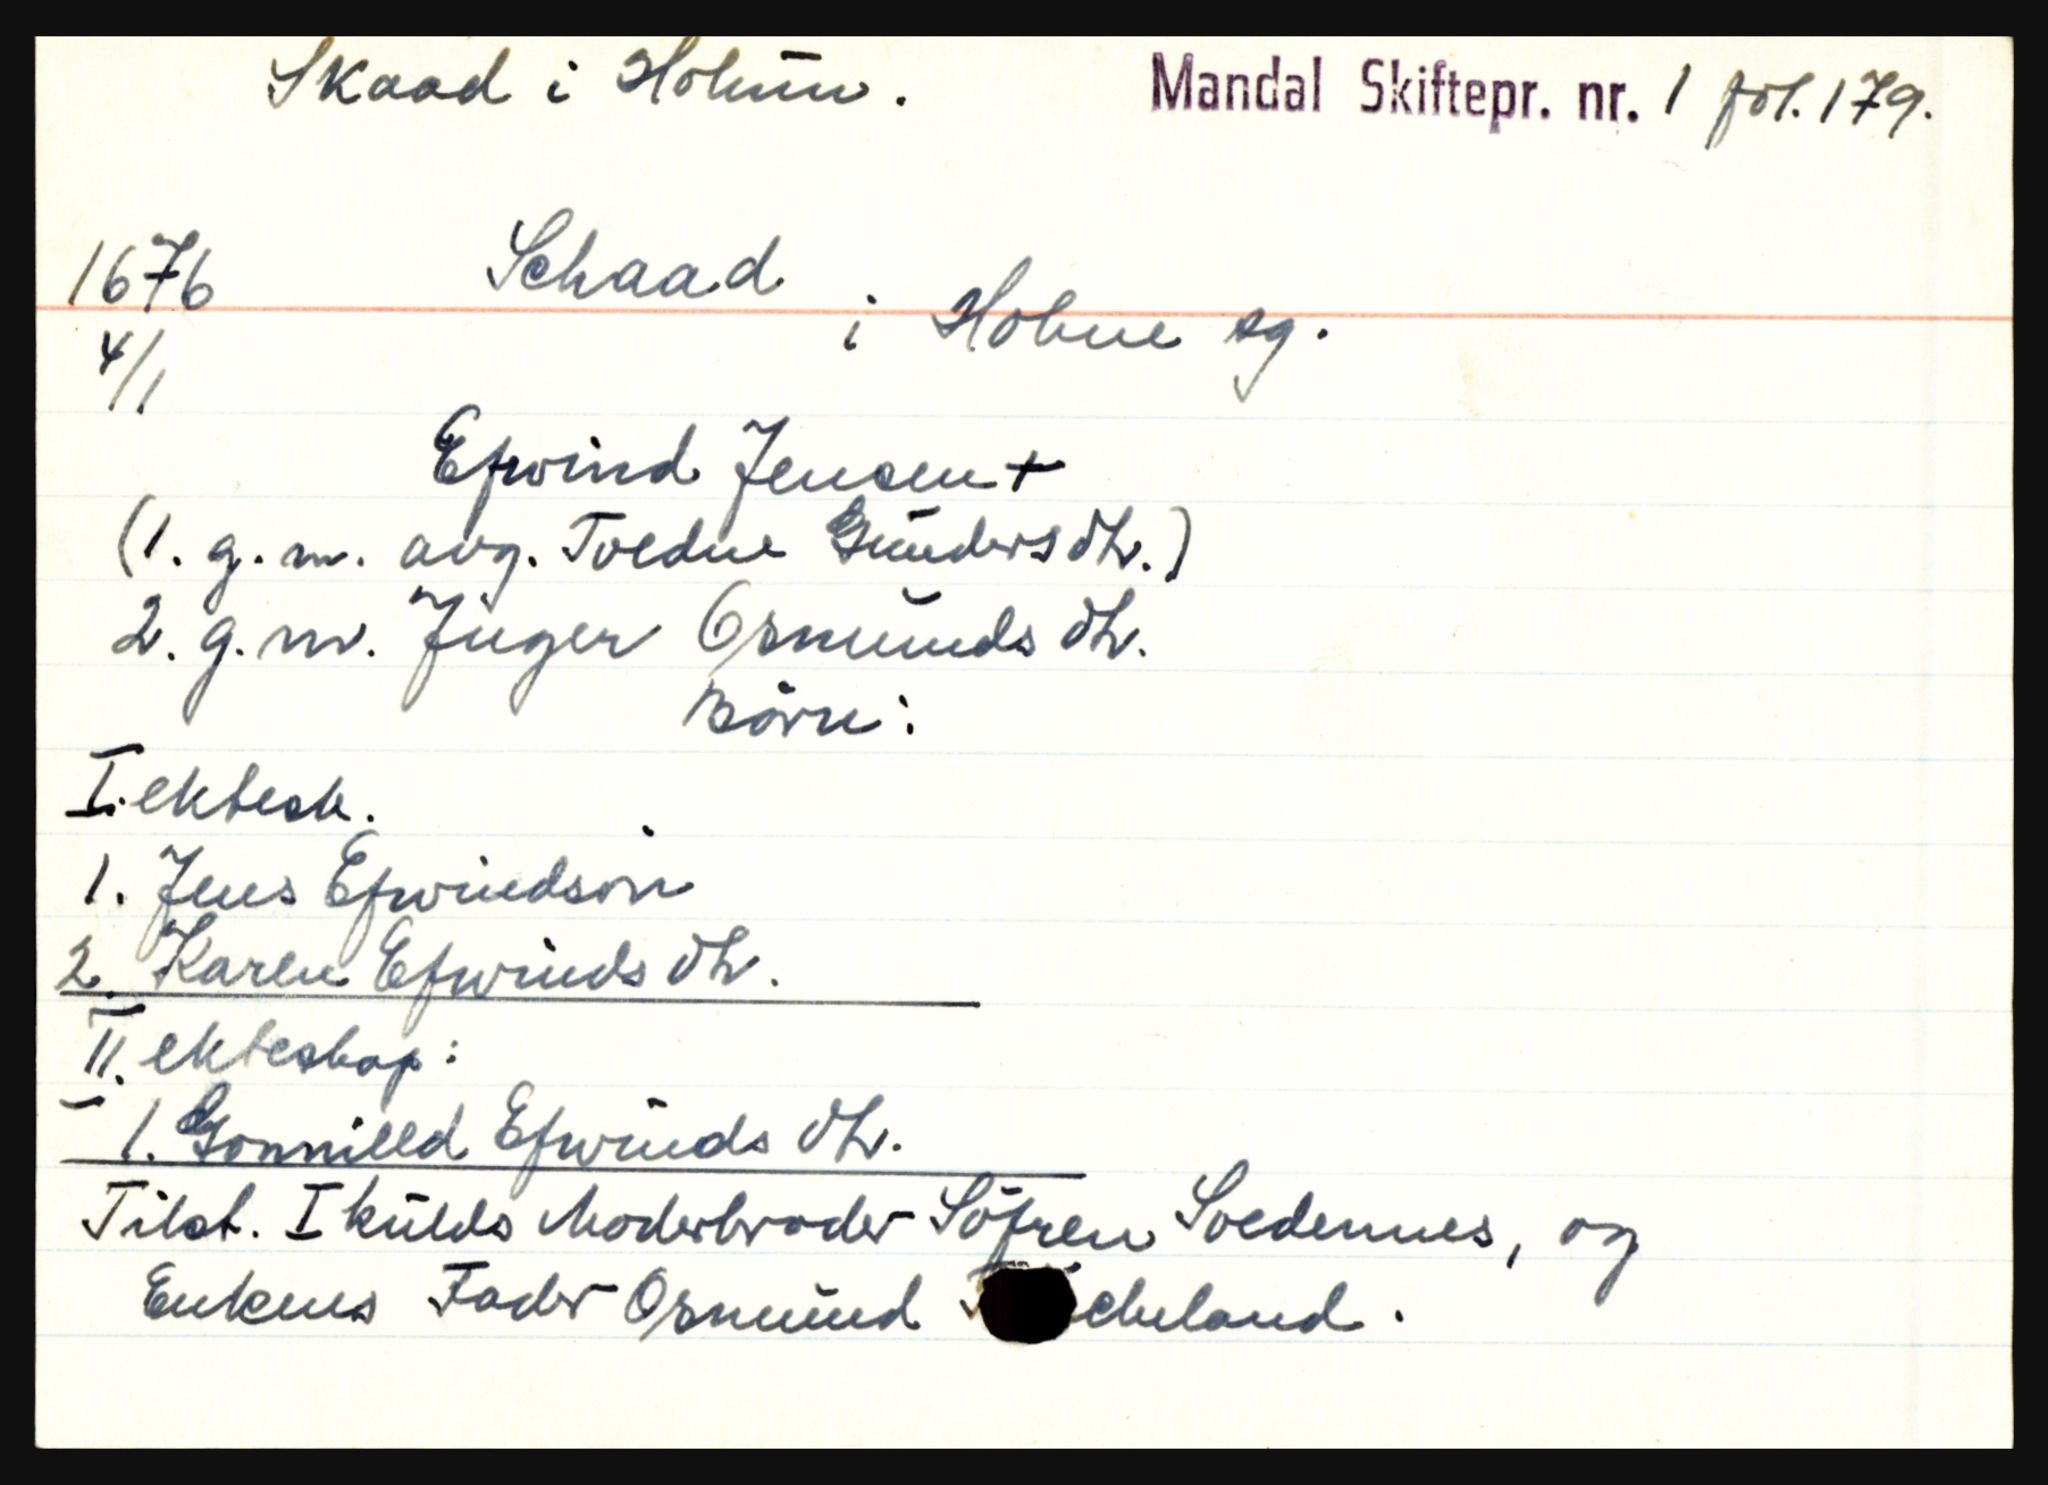 Skaad i Holum. Mandal Skiftepr. nr. 1 fol. 179.
1676 Schaad
4/1 i Holme sg.
Efwind Jensen +
(1. g. m. avg. Tvedne Gündersdtr.)
2. g. m. Jnger Osmünds dtr.
Börn:
I. ektesk.
1. Jens Efwindsön
2. Karen Efwinds dtr.
II. ekteskap:
1. Gonnilld Efwinds dtr.
Tilst. I külds Moderbroder Söfren Svedennes, og
Enkens Fader Osmünd